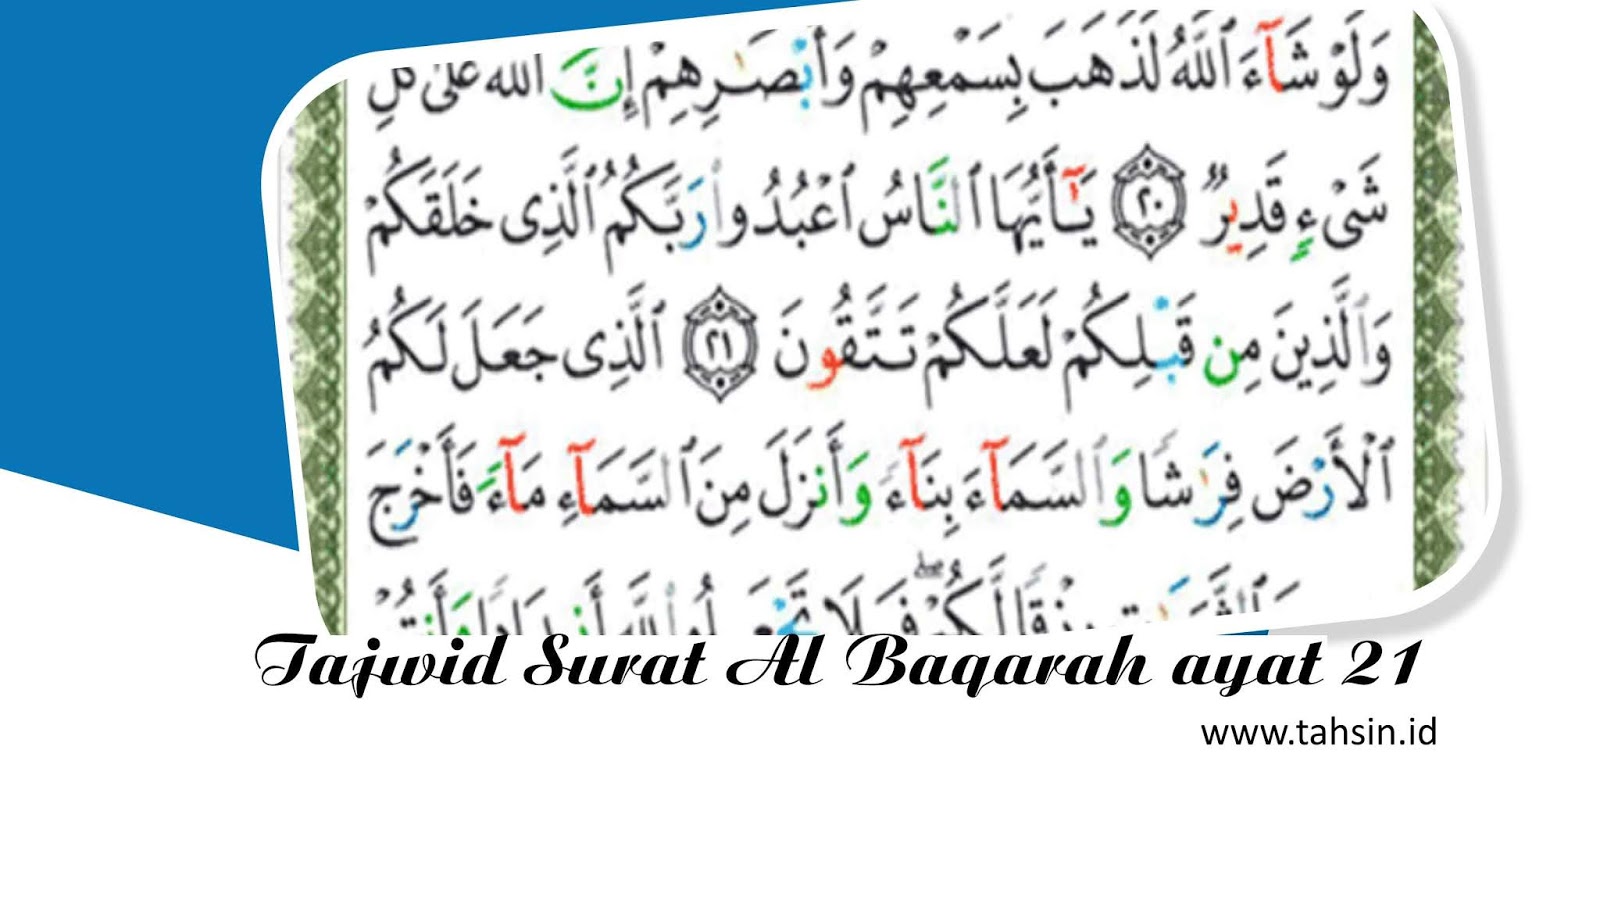 وَلَوْ شَآءَ ٱللَّهُ لَذَهَبَ بِسَمْعِهِمْ وَأَبْصَٰرِهِمْ إِنَّ ٱللَّهَ عَلَىٰ كُلِّ
شَىْءٍ قَدِيرٌ ٢٠ يَٰٓأَيُّهَا ٱلنَّاسُ ٱعْبُدُوا۟ رَبَّكُمُ ٱلَّذِى خَلَقَكُمْ
وَٱلَّذِينَ مِن قَبْلِكُمْ لَعَلَّكُمْ تَتَّقُونَ ٢١ ٱلَّذِى جَعَلَ لَكُمُ
ٱلْأَرْضَ فِرَٰشًا وَٱلسَّمَآءَ بِنَآءً وَأَنزَلَ مِنَ ٱلسَّمَآءِ مَآءً فَأَخْرَجَ
Tajwid Surat Al Baqarah ayat 21
www.tahsin.id